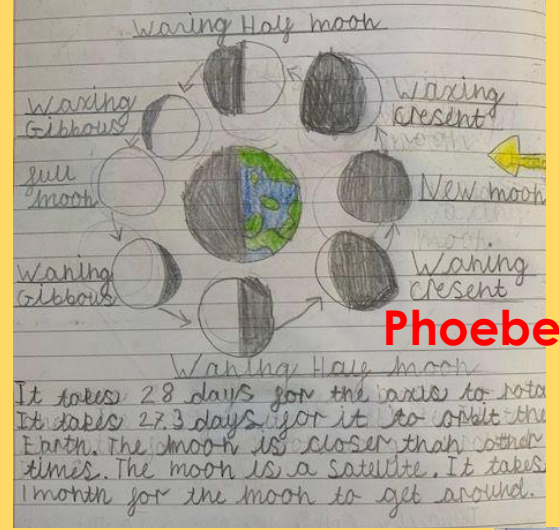 Waxing Half moon
Waxing
Cresent
Waxing
Gibbous
full
moon
New moon
Waning
Gibbous
Waning
Cresent
Phoebe
Waning Half moon
It takes 28 days for the axis to rota
It takes 27.3 days for it to orbit the
Earth. The moon is closer than other
times. The moon is a satellite. It takes
1 month for the moon to get around.